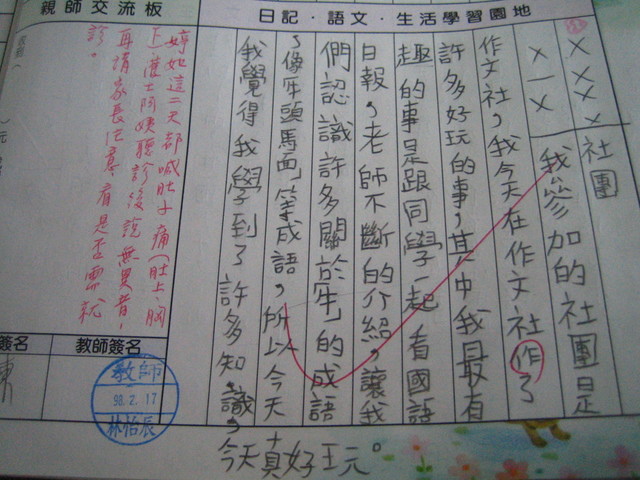 日記·語文·生活學習園地
社團
××××
×一×
我參加的社團是
作文社，我今天在作文社作了
許多好玩的事，其中我最有
趣的事是跟同學一起看國語
日報，老師不斷的介紹，讓我
們認識許多關於「牛」的成語
，像「牛頭馬面」等成語，所以今天
我覺得我學到了許多知識，
今天真好玩。
親師交流板
這二天都喊肚子痛(肚上、胸
下)護士阿姨聽診後說無異音，
再請家長注意，看是否需就
診。
教師簽名
教師
98.2.17
林怡辰
簽名